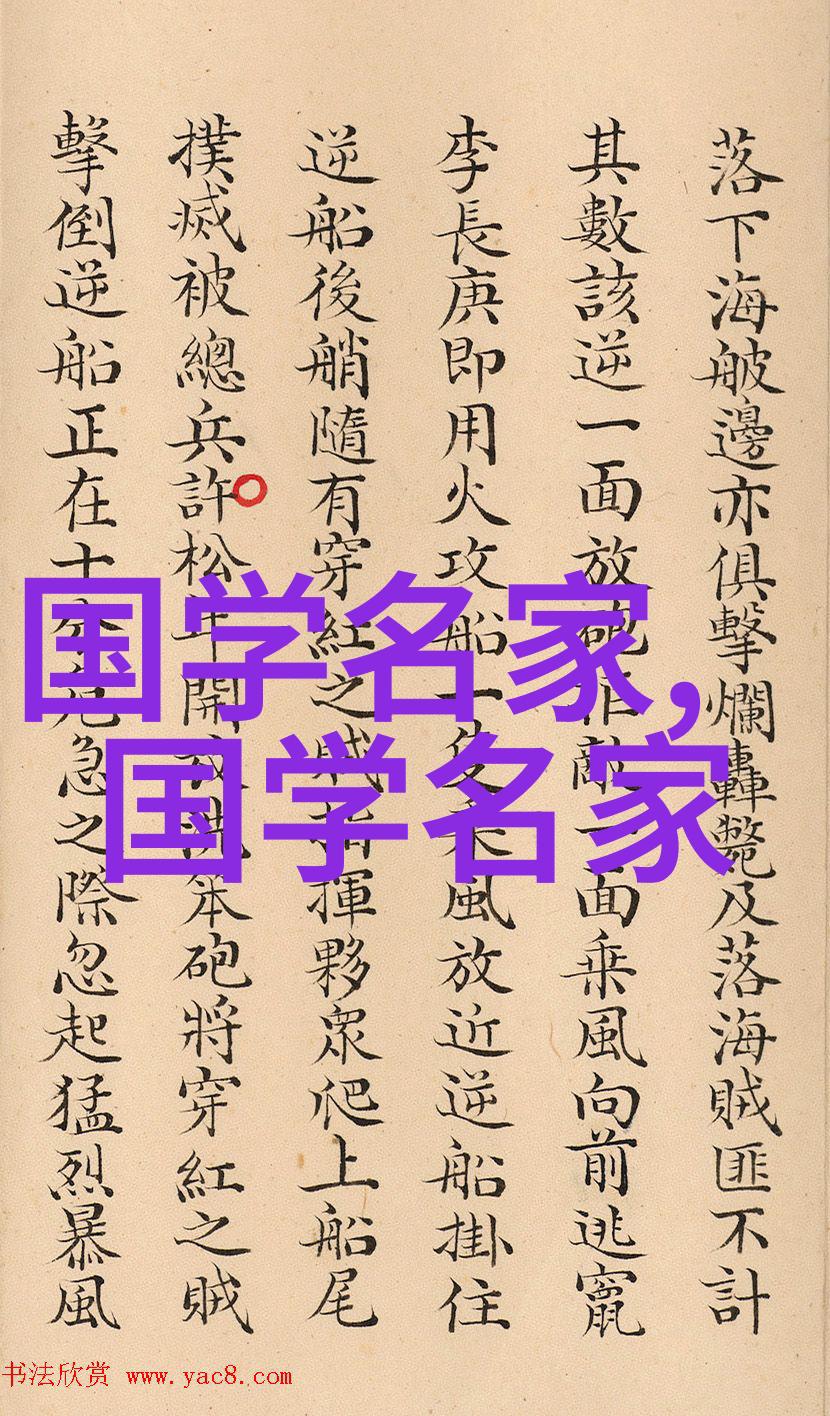 落下海舨邊亦俱擊爛轟斃及落海賊匪不計
其數該逆一面放砲拒敵一面乗風向前逃竄
李長庚即用火攻船一隻乘風放近逆船掛住
逆船後艄隨有穿紅之賊指揮夥眾爬上船尾
撲滅被總兵許松年開放桄笨砲將穿紅之賊
擊倒逆船正在十分危急之際忽起猛烈暴風
国学名家,
国学名家
书法欣赏 www.yac8.com